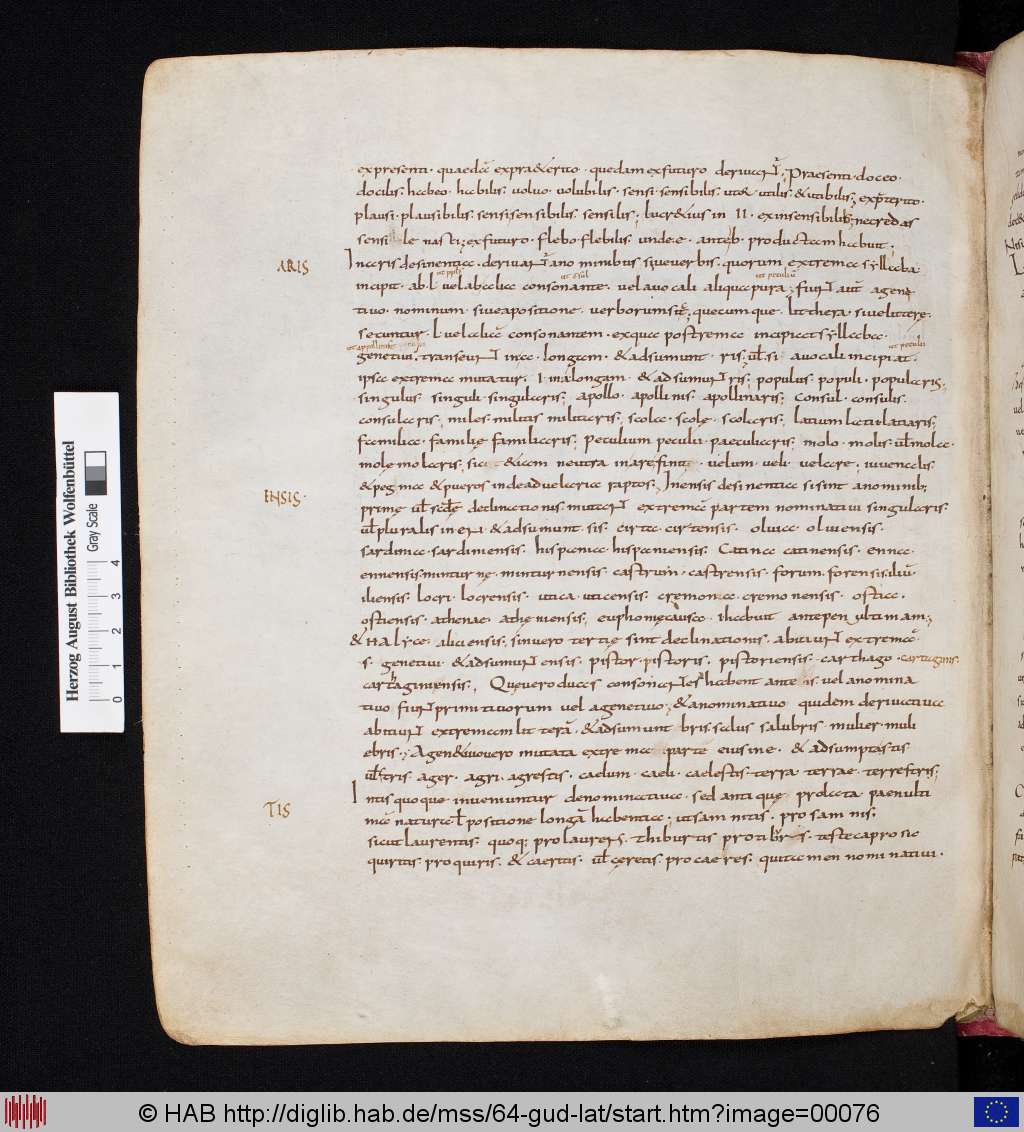 ex presenti · quaedā ex pra&erito · quedam ex futuro deriuant̄ · Praesenti · doceo
docilis · habeo · habilis · uoluo · uolubilis · sensi · sensibilis · utor utilis & utibilis ; ex p̄terito ·
plausi · plausibilis · sensi sensibilis sensilis ; lucr&ius in II · ex insensibilib; ne credas
sensi le nasti ; ex futuro · flebo · flebilis · unde · e · ante b · productam habuit ·
ARIS
In aris desinentia · deriuant̄ a nominibus siue uerbis · quorum extrema syllaba
incipit · ab · l uel ab alia consonante · uel a uocali aliqua pura ; fiunt aut̄ a gene
tiuo nominum · siue a positione uerborum · quecumque litthera siue littere
secuntur · l uel aliā consonantem · ex qua postrema incipiat syllaba ·
genetiui · transeunt in a · longam · & adsumunt · ris ; ul̄ si a uocali incipiat ·
ipsa extrema mutatur · I in a longam · & adsumunt ris ; populus populi · popularis ;
singulus singuli · singularis ; apollo · apollinis · apollinaris ; consul · consulis ·
consularis ; miles · militis militaris ; scola · scolę · scolaris ; latium latii latiaris ;
familia · familię familiaris ; peculium peculii · paeculiaris ; molo · molis ul̄ mola ·
molę molaris ; &iam neutra in are finit · uelum · ueli · uelare ; iuuenalis
ENSIS ·
& pegma & pueros inde ad uelaria raptos ; In ensis desinentia si sint a nominib;
prime ul̄ scd̄ę declinationis · mutant extremā partem nominatiui singularis
ul̄ pluralis in en & adsumunt · sis · cirta · cirtensis · oluia · oluiensis ·
sardinia · sardiniensis · hispania · hispaniensis · Catina catinensis · enna ·
ennensis · minturnę · minturnensis · castrum · castrensis · forum · forensis · iliū ·
iliensis · locri · locrensis · utica · uticensis · cremona · cremonensis · ostia ·
ostiensis · athenae · atheniensis ; euphonię causa · I habuit antepenultimam ;
& HALYCE · aliciensis ; sin uero tertię sint declinationis · abiciunt extremā
s · genetiui · & adsumunt ensis · pistor · pistoris · pistoriensis · carthago · cartaginis ·
cartaginiensis · Que uero duas consonantes habent ante is · uel a nomina
tiuo fiunt primitiuorum uel a genetiuo ; & a nominatiuo quidem deriuatiua
abiciunt extremam litterā · & adsumunt bris · salus salubris · mulier · muli
ebris ; A gen&iuo uero mutata extrema parte eius in e · & adsumptastis
ul̄ stris · ager · agri · agrestis · caelum · caeli · caelestis · terra terrae · terrestris ;
TIS
In tis quoque inueniuntur denominatiua · sed antique prolata paenulti
ma natura ul̄ positione longā habentia · ut samnitis · pro samnis ;
sicut laurentis · quoq; pro laurens · thiburtis pro tiburs · teste capro sic
quiritis pro quiris · & caeritis · ul̄ çeretis · pro caeres · qui tamen nominatiui ·
Herzog August Bibliothek Wolfenbüttel
Gray Scale
0 1 2 3 4
© HAB http://diglib.hab.de/mss/64-gud-lat/start.htm?image=00076